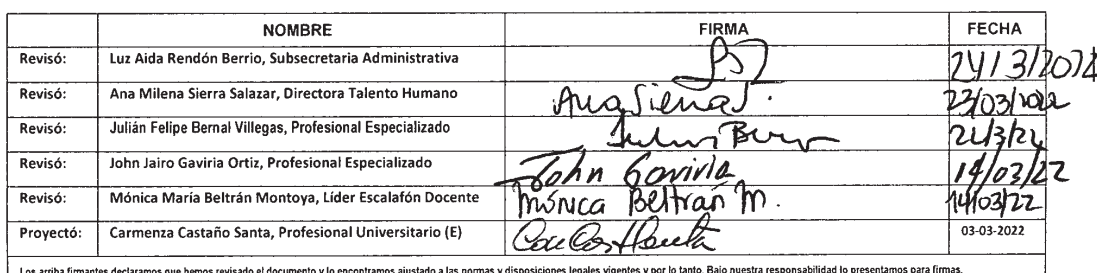 NOMBRE FIRMA FECHA
Revisó: Luz Aida Rendón Berrio, Subsecretaria Administrativa 24/3/2022
Revisó: Ana Milena Sierra Salazar, Directora Talento Humano Ana Sierra S. 23/03/2022
Revisó: Julián Felipe Bernal Villegas, Profesional Especializado
Revisó: John Jairo Gaviria Ortiz, Profesional Especializado John Gaviria 14/03/22
Revisó: Mónica María Beltrán Montoya, Líder Escalafón Docente Mónica Beltrán M. 14/03/22
Proyectó: Carmenza Castaño Santa, Profesional Universitario (E) 03-03-2022
Los arriba firmantes declaramos que hemos revisado el documento y lo encontramos ajustado a las normas y disposiciones legales vigentes y por lo tanto. Bajo nuestra responsabilidad lo presentamos para firmas.